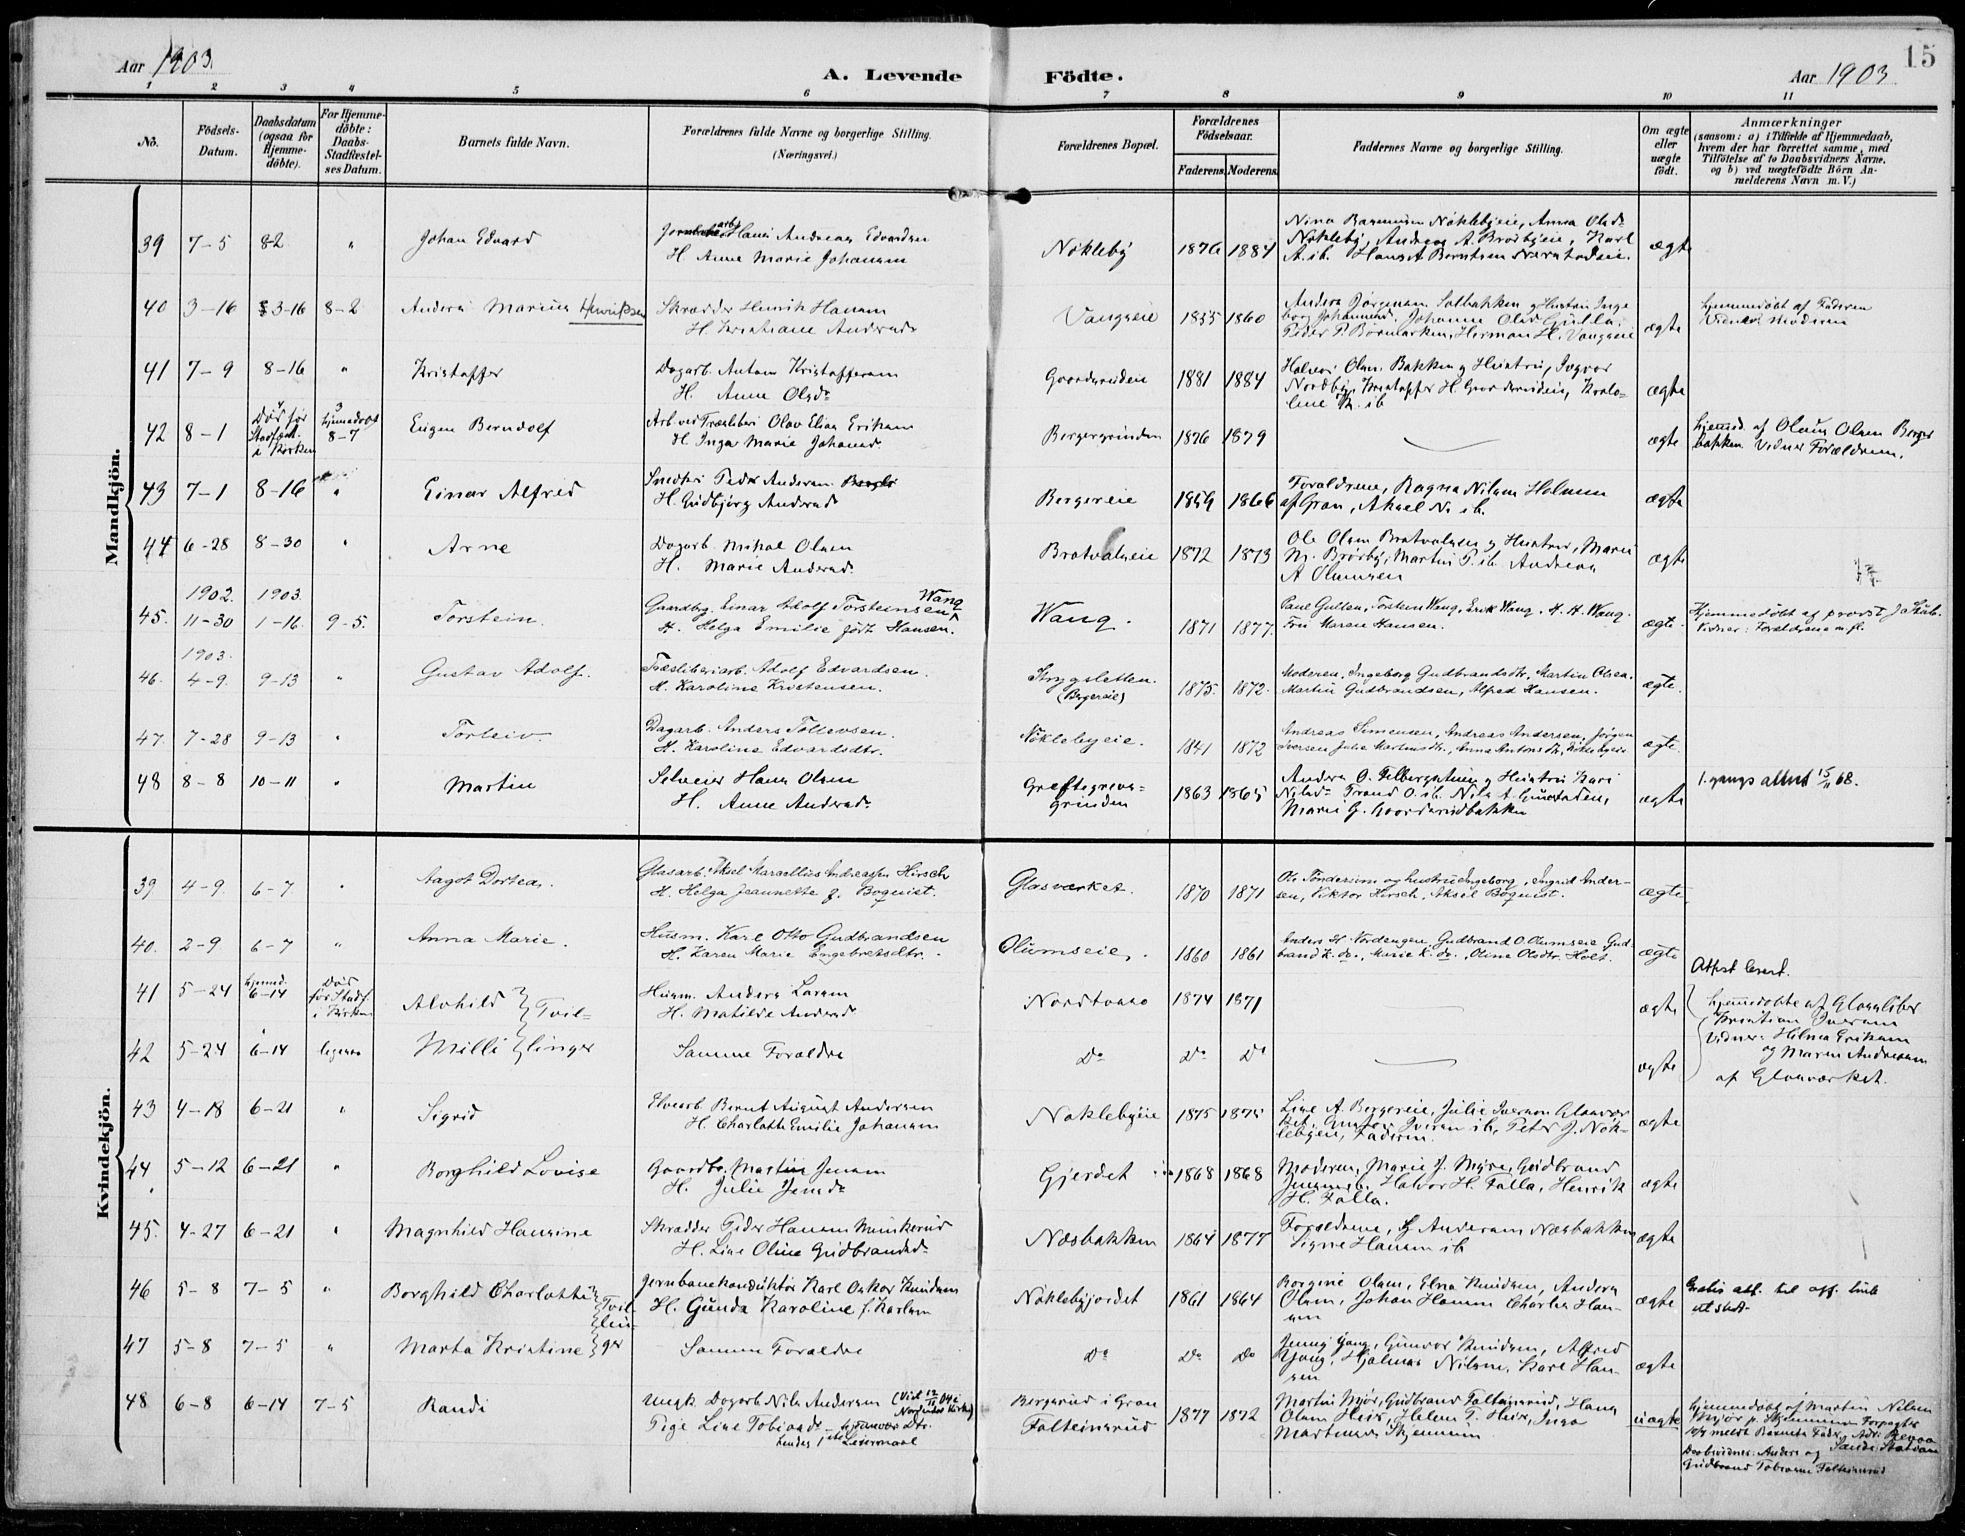 15
Aar 1903.
A. Levende Födte.
Aar 1903
1 2 3 4 5 6 7 8 9 10 11
No.
Födsels-Datum.
Daabsdatum (ogsaa for Hjemme-döbte).
For Hjemme-döbte: Daabs-Stadfæstel-ses Datum.
Barnets fulde Navn.
Forældrenes fulde Navne og borgerlige Stilling. (Næringsvei.)
Forældrenes Bopæl.
Forældrenes Födselsaar.
Faderens. Moderens.
Faddernes Navne og borgerlige Stilling.
Om ægte eller uægte födt.
Anmærkninger
(saasom: a) i Tilfælde af Hjemmedaab,
hvem der har forrettet samme, med
Tilföielse af to Daabsvidners Navne.
og b) ved uægtefödte Börn An-
melderens Navn m. V.)
Mandkjön.
39 7-5 8-2 " Johan Edvard
Hans Andreas Edvardsen
H. Anne Marie Johansen
Nøkleby 1876 1884
Nøklebyeie, Anna Olsd.
Nøkleby, Andreas A. Brørbyeie, Karl
A. ib. Hans A. Berntsen
ægte
40 3-16 3-16 8-2 Anders Marius Henriksen
Skrædder Henrik Hansen
H. Kristiane Andersd.
Vangseie 1855 1860
Anders Jørgensen Solbakken og Hustru Inge-
borg Johannesd. Johanne Olsd Gulla.
Peder P. Børmarken, Herman H. Vangseie
ægte
Hjemmedøbt af Faderen
Vidne: Moderen
41 7-9 8-16 " Kristoffer
Dagarb. Anton Kristoffersen
H. Anne Olsd.
Gaardsenden 1881 1884
Halvor Olsen Bakken og Hustru, Ingvor
Nordby, Kristoffer H. Karo-
line K. ib
ægte
42 8-1 Død før Stadfæst. i Kirken Hjemmedøbt 8-7 Eugen Berndolf
Arb. ved Træsliberi Olav Elias Eriksen
H. Inga Marie Johansd.
Bergergrinden 1876 1879
ægte
Hjemmed. af Olaus Olsen Berger
bakken Vidner Forældrene.
43 7-1 8-16 " Einar Alfred
Snedker Peder Andersen
H. Gudbjørg Andersd
Bergereie 1859 1866
Forældrene, Ragna Nilsen Holmen
af Gran, Aksel N. ib.
ægte
44 6-28 8-30 " Arne
Dagarb. Mikal Olsen
H. Marie Andersd.
Bratvalseie 1872 1873
Ole Olsen Bratvalseie og Hustru, Marie
M. Brørby, Martin P. ib. Andreas
A Olumseie
ægte
1902. 1903.
45. 11-30 1-16. 9-5. Torstein.
Gaardbr. Einar Adolf Torsteinsen Wang
H. Helga Emilie født Hansen.
Wang. 1871 1877.
Paul Gullen, Torstein Wang, Erik Wang, H. H. Wang.
Fru Maren Hansen.
ægte.
Hjemmedøbt af provst J. Skub.
Vidner: Forældrene m. fl.
1903.
46. 4-9. 9-13 " Gustav Adolf.
Træsliberiarb. Adolf Edvardsen.
H. Karoline Kristensen.
Strygsletten. (Bergereie) 1875. 1872.
Moderen, Ingeborg Gudbrandsdtr, Martin Olsen.
Martin Gudbrandsen, Alfred Hansen.
ægte.
47. 7-28 9-13 " Torleiv.
Dagarb. Anders Tollevsen.
H. Karoline Edvardsdtr.
Nøklebyeie. 1841 1872
Andreas Simensen, Andreas Andersen, Jørgen
Iversen Julie Martinsdtr, Anna Antonsdtr, Nøklebyeie
ægte.
48 8-8 10-11 " Martin
Selveier Hans Olsen
H. Anne Andersd.
Greftegrevs-grinden 1863 1865
Anders O. Felbergstuen og Hustru Kari
Nilsd. Trond O. ib. Nils A. Gunstaden,
Marie G. Gaarderudbakken
ægte
1. gangs attest 15/11 68.
Kvindekjön.
39 4-9. 6-7 " Aagot Dortea.
Glasarb. Aksel Marcellius Andreassen Hirsch
H. Helga Jeannette f. Boquist.
Glasværket. 1870 1871
Ole Tønderum og hustru Ingeborg, Ingrid Ander-
sen, Viktor Hirsch, Aksel Boquist.
ægte
40. 2-9 6-7 " Anna Marie.
Husm. Karl Otto Gudbrandsen
H. Karen Marie Engebretsdtr.
Olumseie. 1860 1861
Anders H. Nordengen, Gudbrand O. Olumseie, Gud-
brand K. do., Marie K. do., Oline Olsdtr. Holt.
ægte
41 5-24 hjemmed. 6-14 Død før Stadf. i Kirken Alvhild Tvil-
Husm. Anders Larsen
H. Matilde Andersd
Nordtoaao 1874 1871
ægte
Attest levert.
Hjemmedøbte af Glassliber
Kristian Iversen
Vidner: Hilma Eriksen
og Maren Andresen
af Glasværket.
42 5-24 6-14 ligesaa Milli linger
Samme Forældre
Do Do Do
ægte
43 4-18 6-21 " Sigrid
Elvearb Bernt August Andersen
H. Charlotte Emilie Johansen
Nøklebyeie 1875 1875
Line A. Bergereie, Julie Iversen Glasvær
ket, Gustav Iversen ib, Peter J. Nøk-
lebyeie, Faderen.
ægte
44 5-12 6-21 " Borghild Lovise
Gaardbr. Martin Jensen
H. Julie Jensd.
Gjerdet 1868 1868
Moderen, Marie J. Myre, Gudbrand
Jensen ib. Halvor H. Falla, Henrik
H. Falla.
ægte
45. 4-27 6-21 " Magnhild Hansine
Skrædder Peder Hansen Munkerud
H. Line Oline Gudbrandsd.
Næsbakken 1864 1877
Forældrene, Andersen Næsbakken
Signe Hansen ib
ægte
46 5-8 7-5 " Borghild Charlotte Tvil-
Jernbanekonduktør Karl Oskar Knudsen
H. Gunda Karoline f. Karlsen
Nøklebyjordet 1861 1864
Borgine Olsen, Elna Knudsen, Anders
Olsen, Johan Hansen Charles Han-
sen
ægte
Gratis att. til off. bruk
utstedt.
lin-
47 5-8 7-5 " Marta Kristine ger
Samme Forældre
Do Do Do
Jenny Gang, Gunvor Knudsen, Alfred
Gang, Hjalmar Nilsen, Karl Han-
sen
ægte
48 6-8 6-14 7-5 Randi
Ungk. Dagarb. Nils Andersen (Viet 12/11 04 i
Nordsinni Kirke)
Pige Line Tobiasd.
Bergerud i Gran
Falteinsrud 1877 1872
Martin Mjør, Gudbrand Falteinsrud, Hans
Olsen Heir, Helene T. Heir, Inga
Martinsen Skjennum
uægte
Hjemmedøbt af Martin Nilsen
Mjør p. Skjennum Forpagter
meldt Barnets Fader, Adr:
Daabsvidner: Anders og
Gudbrand Tobiassen Falteinsrud